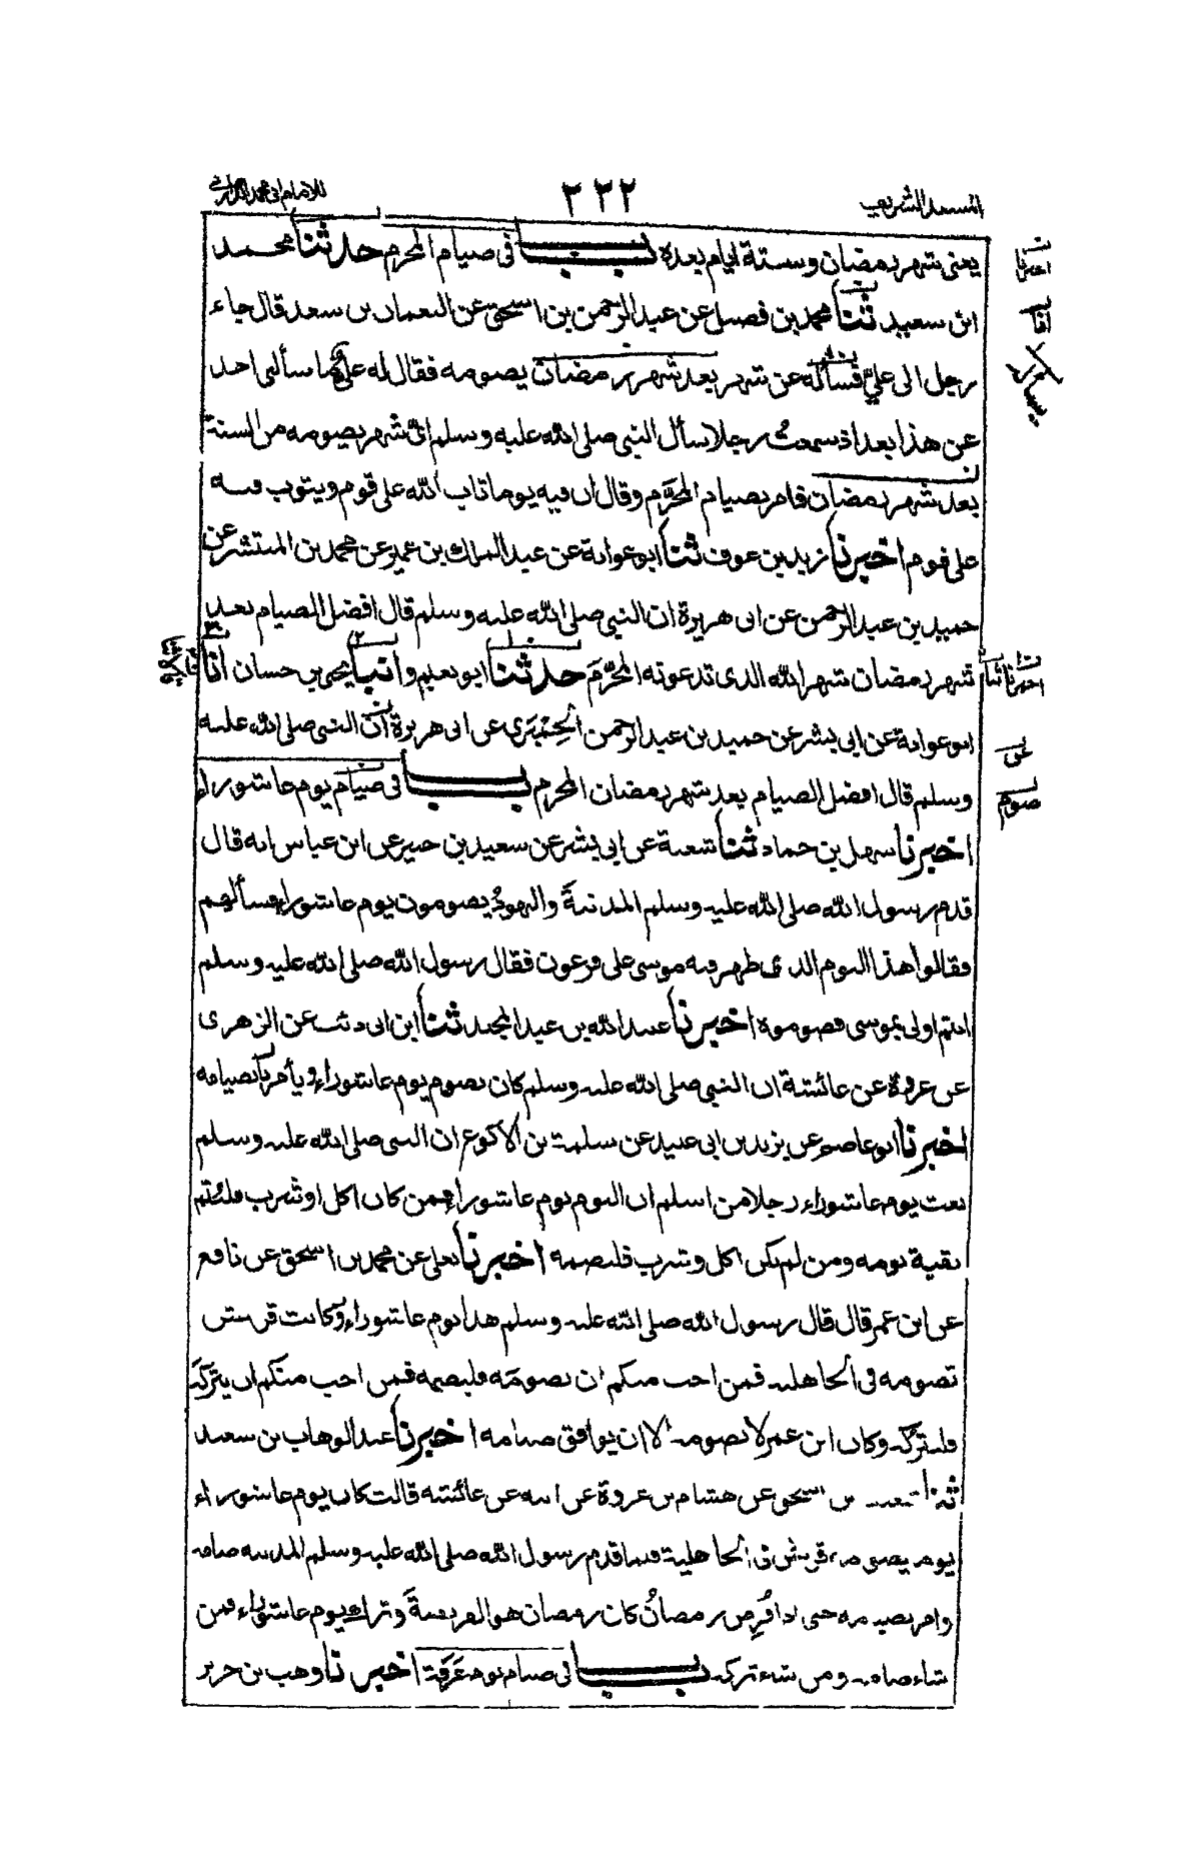 المسند الشريف ٢٣٢ للامام ابى محمد الدارمى
يعنى شهر رمضان وستة ايام بعده باب فى صيام المحرم حدثنا محمد
ابن سعيد ثنا محمد بن فضيل عن عبد الرحمن بن اسحق عن النعمان بن سعد قال جاء
رجل الى علىّ فسأله عن شهر بعد شهر رمضان يصومه فقال له علىّ ما سألنى احد
عن هذا بعد اذ سمعتُ رجلا سأل النبى صلى الله عليه وسلم اىّ شهر يصومه من السنة
بعد شهر رمضان فامر بصيام المحرَّم وقال ان فيه يوما تاب الله على قوم ويتوب فيه
على قوم اخبرنا زيد بن عوف ثنا ابو عوانة عن عبد الملك بن عمير عن محمد بن المنتشر عن
حميد بن عبد الرحمن عن ابى هريرة ان النبى صلى الله عليه وسلم قال افضل الصيام بعد
شهر رمضان شهر الله الذى تدعونه المحرَّم حدثنا ابو نعيم وانبا يحيى بن حسان انا
ابو عوانة عن ابى بشر عن حميد بن عبد الرحمن الحِمْيَرى عن ابى هريرة ان النبى صلى الله عليه
وسلم قال افضل الصيام بعد شهر رمضان المحرم باب فى صيام يوم عاشوراء
اخبرنا سهل بن حماد ثنا شعبة عن ابى بشر عن سعيد بن جبير عن ابن عباس انه قال
قدم رسول الله صلى الله عليه وسلم المدينةَ واليهودُ يصومون يوم عاشوراء فسألهم
فقالوا هذا اليوم الذى ظهر فيه موسى على فرعون فقال رسول الله صلى الله عليه وسلم
انتم اولى بموسى فصوموه اخبرنا عبيد الله بن عبد المجيد ثنا ابن ابى ذئب عن الزهرى
عن عروة عن عائشة ان النبى صلى الله عليه وسلم كان يصوم يوم عاشوراء ويأمرنا بصيامه
اخبرنا ابو عاصم عن يزيد بن ابى عبيد عن سلمة بن الاكوع ان النبى صلى الله عليه وسلم
بعث يوم عاشوراء رجلا من اسلم ان اليوم يوم عاشوراء فمن كان اكل او شرب فليُتم
بقية يومه ومن لم يكن اكل وشرب فليصمه اخبرنا يعلى عن محمد بن اسحق عن نافع
عن ابن عمر قال قال رسول الله صلى الله عليه وسلم هذا يوم عاشوراء وكانت قريش
تصومه فى الجاهلية فمن احب منكم ان يصومَه فليصمه فمن احب منكم ان يتركَه
فليتركه وكان ابن عمر لا يصومه الا ان يوافق صيامه اخبرنا عبد الوهاب بن سعيد
ثنا شعيب بن اسحق عن هشام بن عروة عن ابيه عن عائشة قالت كان يوم عاشوراء
يوم يصومه قريش فى الجاهلية فلما قدم رسول الله صلى الله عليه وسلم المدينة صامه
وامر بصيامه حتى اذا فُرِض رمضانُ كان رمضان هو الفريضةَ وترك يوم عاشوراء فمن
شاء صامه ومن شاء تركه باب فى صيام يوم عَرَفَة اخبرنا وهب بن جرير
اخبرنا
عن
صوم